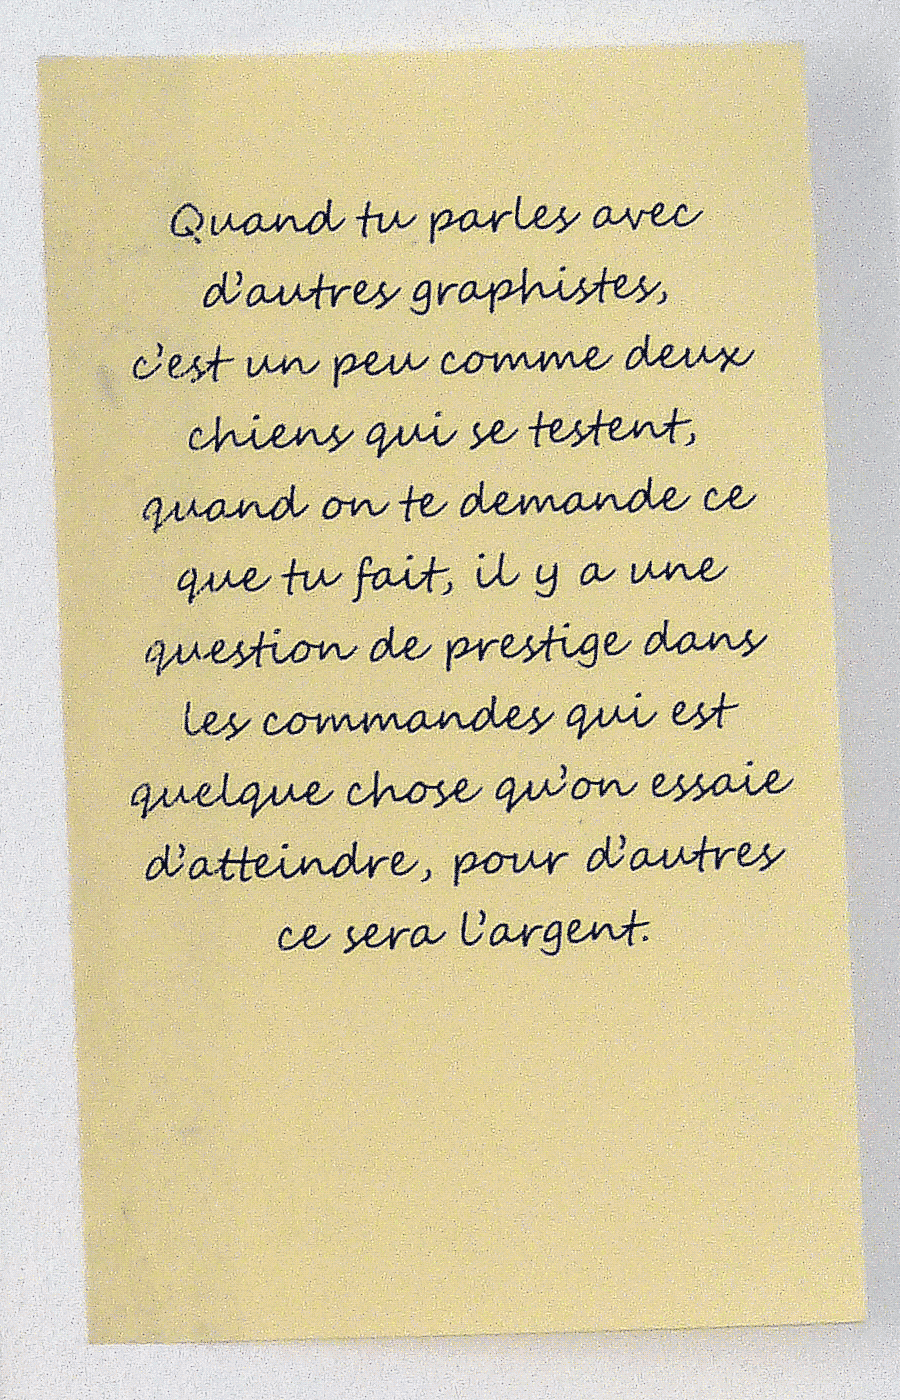 Quand tu parles avec
d'autres graphistes,
c'est un peu comme deux
chiens qui se testent,
quand on te demande ce
que tu fait, il y a une
question de prestige dans
les commandes qui est
quelque chose qu'on essaie
d'atteindre, pour d'autres
ce sera l'argent.